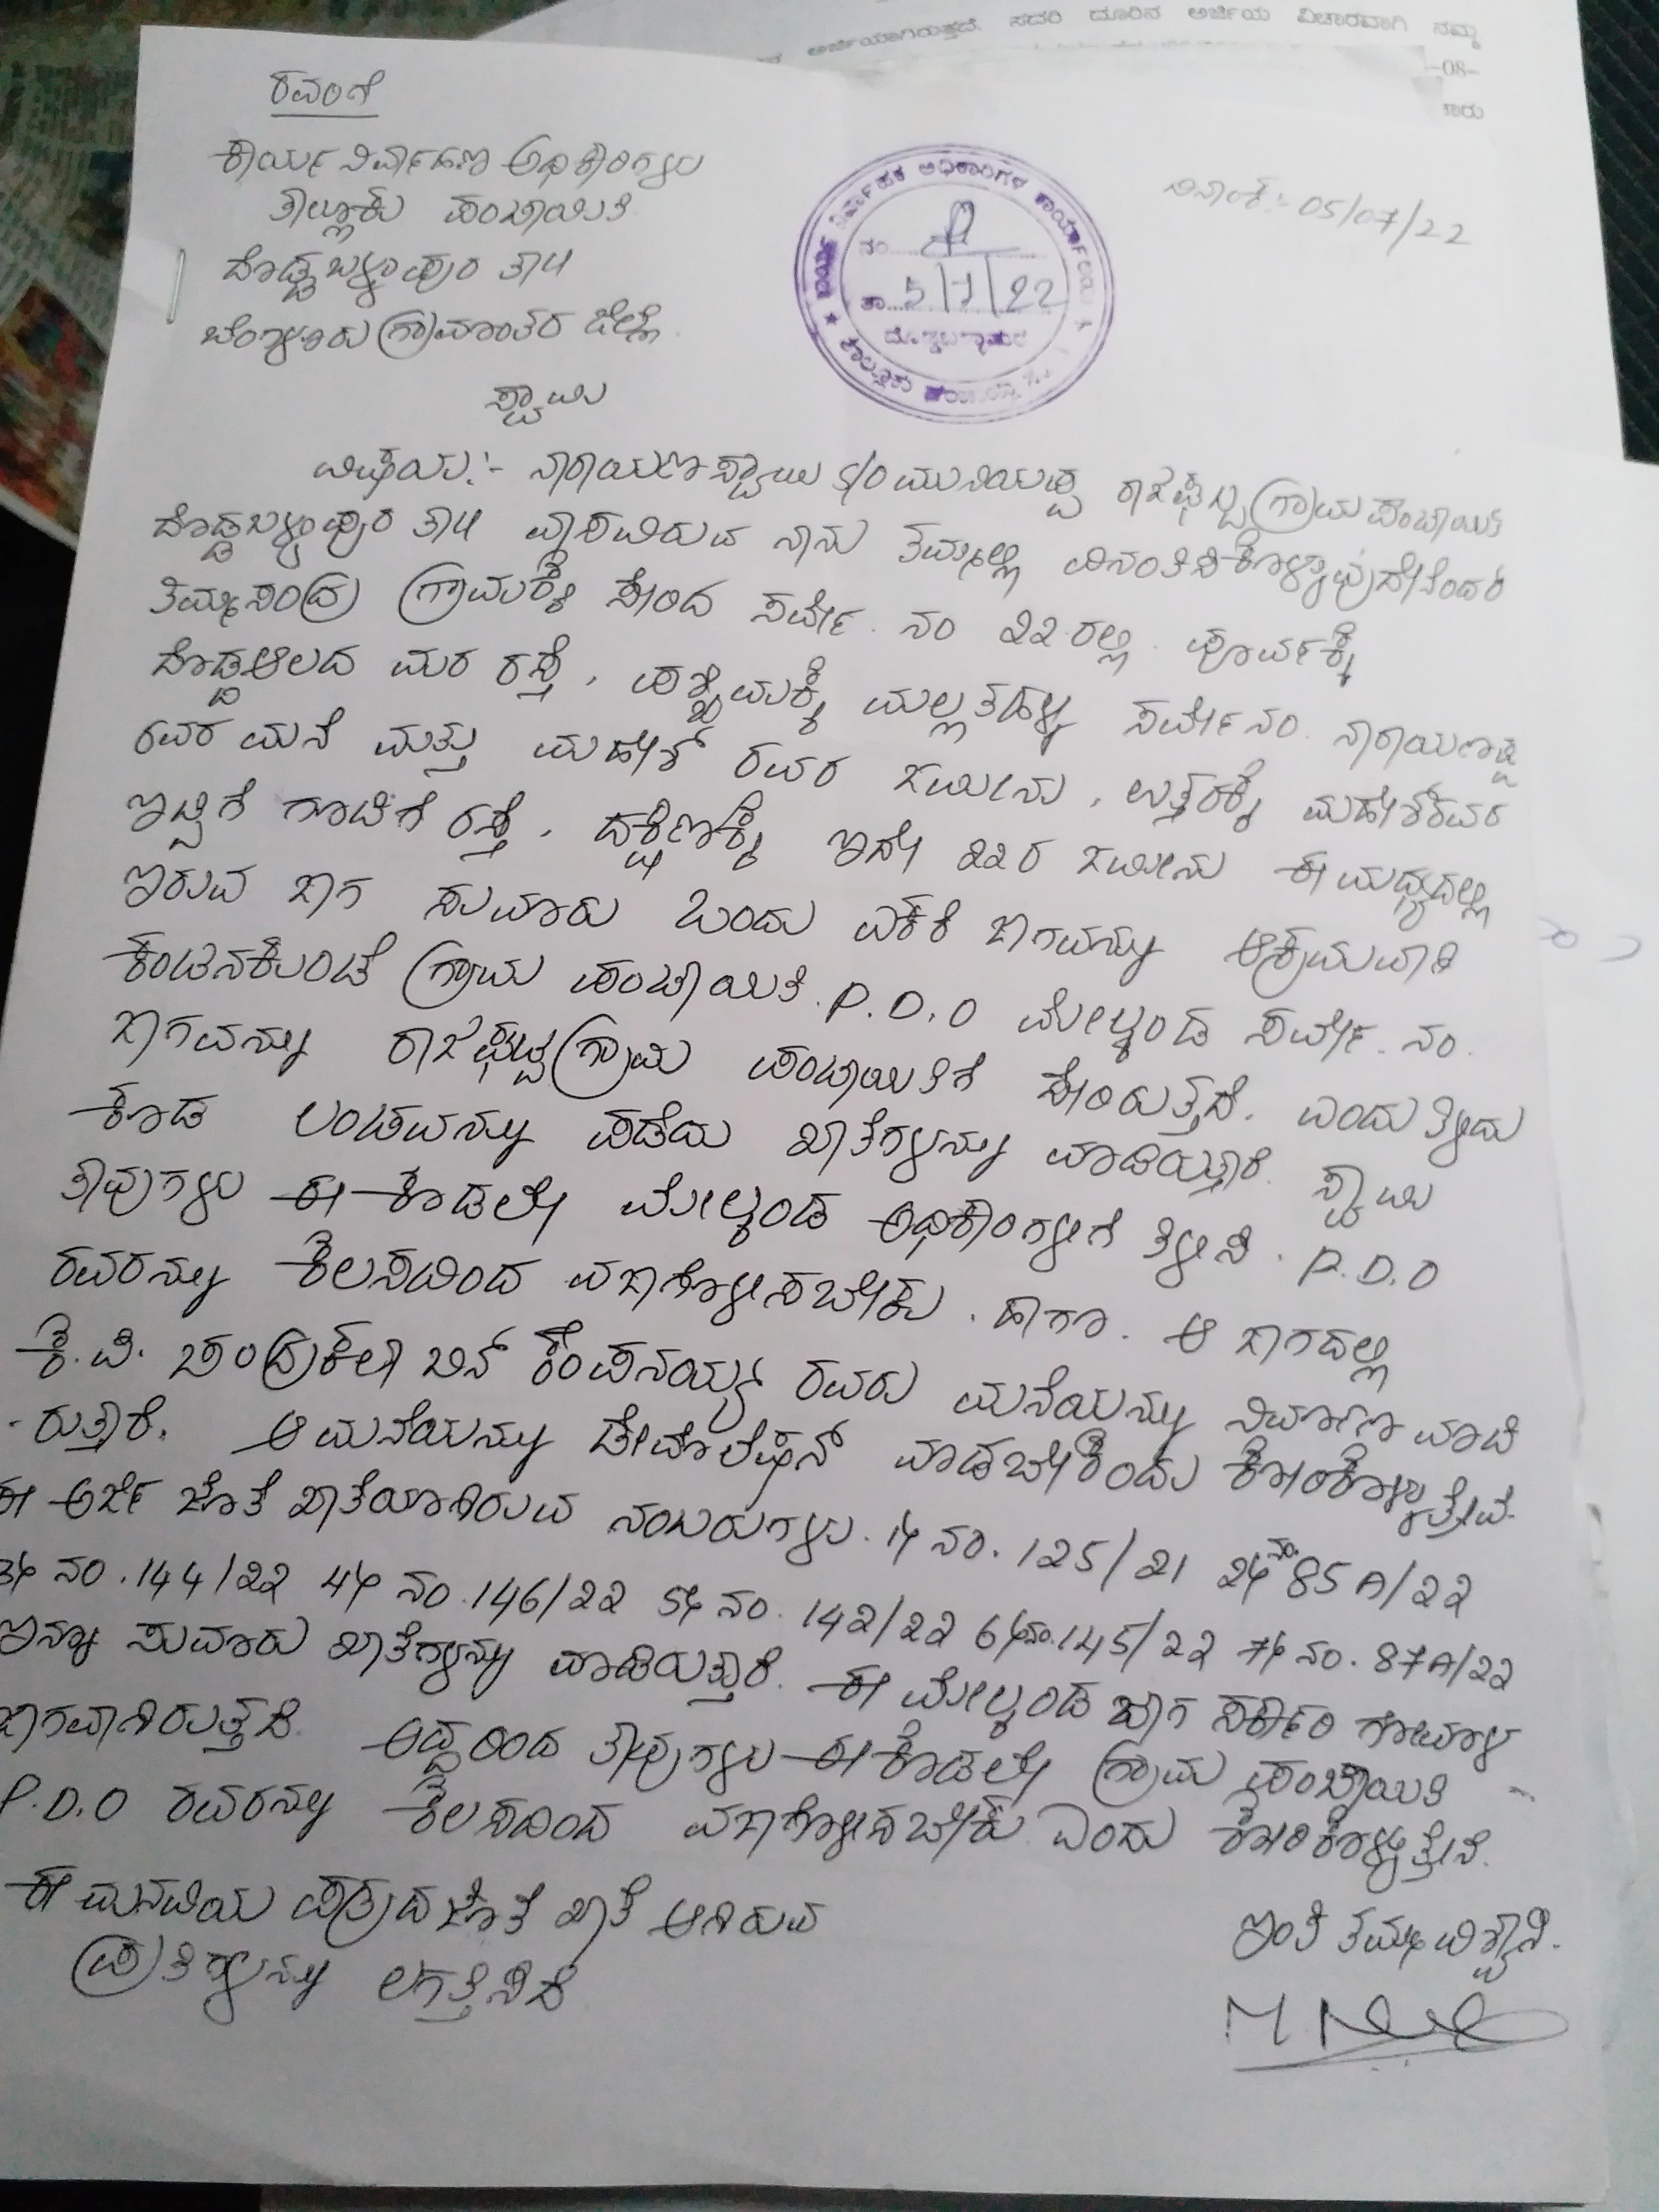 ಅರ್ಜಿಯಾಗಿರುತ್ತದೆ. ಸದರಿ ದೂರಿನ ಅರ್ಜಿಯ ವಿಚಾರವಾಗಿ ನಮ್ಮ
-08-
ರವರಿಗೆ
ಕಾರ್ಯ ನಿರ್ವಾಹಣ ಅಧಿಕಾರಿಗಳು
ತಾಲ್ಲೂಕು ಪಂಚಾಯಿತಿ
ದೊಡ್ಡಬಳ್ಳಾಪುರ ತಾ॥
ಬೆಂಗಳೂರು ಗ್ರಾಮಾಂತರ ಜಿಲ್ಲೆ.
ದಿನಾಂಕ:- 05/07/22
ನಿರ್ವಾಹಕ ಅಧಿಕಾರಿಗಳ ಕಾರ್ಯಾಲಯ
ನಂ
ತಾ 5/7/22
ದೊಡ್ಡಬಳ್ಳಾಪುರ
ಸ್ವಾಮಿ
ವಿಷಯ:- ನಾರಾಯಣಸ್ವಾಮಿ S/O ಮುನಿಯಪ್ಪ ರಾಜಘಟ್ಟ ಗ್ರಾಮ ಪಂಚಾಯಿತಿ
ದೊಡ್ಡಬಳ್ಳಾಪುರ ತಾ॥ ವಾಸವಿರುವ ನಾನು ತಮ್ಮಲ್ಲಿ ವಿನಂತಿಸಿಕೊಳ್ಳುವುದೇನೆಂದರೆ
ತಿಮ್ಮಸಂದ್ರ ಗ್ರಾಮಕ್ಕೆ ಸೇರಿದ ಸರ್ವೇ. ನಂ 22 ರಲ್ಲಿ. ಪೂರ್ವಕ್ಕೆ
ದೊಡ್ಡಆಲದ ಮರ ರಸ್ತೆ, ಪಶ್ಚಿಮಕ್ಕೆ ಮಲ್ಲತಹಳ್ಳಿ ಸರ್ವೇ ನಂ. ನಾರಾಯಣಪ್ಪ
ರವರ ಮನೆ ಮತ್ತು ಮಹೇಶ್ ರವರ ಜಮೀನು, ಉತ್ತರಕ್ಕೆ ಮಹೇಶ್‌ರವರ
ಇಟ್ಟಿಗೆ ಗೂಡಿಗೆ ರಸ್ತೆ, ದಕ್ಷಿಣಕ್ಕೆ ಇದೇ 22ರ ಜಮೀನು ಈ ಮಧ್ಯದಲ್ಲಿ
ಇರುವ ಜಾಗ ಸುಮಾರು ಒಂದು ಎಕರೆ ಜಾಗವನ್ನು ಅಕ್ರಮವಾಗಿ
ಕಂಟನಕುಂಟೆ ಗ್ರಾಮ ಪಂಚಾಯಿತಿ. P.D.O ಮೇಲ್ಕಂಡ ಸರ್ವೇ. ನಂ.
ಜಾಗವನ್ನು ರಾಜಘಟ್ಟ ಗ್ರಾಮ ಪಂಚಾಯಿತಿಗೆ ಸೇರಿರುತ್ತದೆ. ಎಂದು ತಿಳಿದು
ಕೂಡ ಲಂಚವನ್ನು ಪಡೆದು ಖಾತೆಗಳನ್ನು ಮಾಡಿರುತ್ತಾರೆ. ಸ್ವಾಮಿ
ತಾವುಗಳು ಈ ಕೂಡಲೇ ಮೇಲ್ಕಂಡ ಅಧಿಕಾರಿಗಳಿಗೆ ತಿಳಿಸಿ. P.D.O
ರವರನ್ನು ಕೆಲಸದಿಂದ ವಜಾಗೊಳಿಸಬೇಕು. ಹಾಗೂ. ಆ ಜಾಗದಲ್ಲಿ
ಕೆ.ವಿ. ಚಂದ್ರಕಲಾ ಬಿನ್ ಕೆಂಪನಯ್ಯ ರವರು ಮನೆಯನ್ನು ನಿರ್ಮಾಣ ಮಾಡಿ
-ರುತ್ತಾರೆ. ಆ ಮನೆಯನ್ನು ಡೇಮೊಲೆಷನ್ ಮಾಡಬೇಕೆಂದು ಕೋರಿಕೊಳ್ಳುತ್ತೇವೆ.
ಈ ಅರ್ಜಿ ಜೊತೆ ಖಾತೆಯಾಗಿರುವ ನಂಬರುಗಳು. 1ನೇ ನಂ. 125/21 2ನೇ ನಂ. 85A/22
3ನೇ ನಂ. 144/22 4ನೇ ನಂ. 146/22 5ನೇ ನಂ. 142/22 6ನೇ ನಂ. 145/22 7ನೇ ನಂ. 87A/22
ಇನ್ನೂ ಸುಮಾರು ಖಾತೆಗಳನ್ನು ಮಾಡಿರುತ್ತಾರೆ. ಈ ಮೇಲ್ಕಂಡ ಜಾಗ ಸರ್ಕಾರಿ ಗೋಮಾಳ
ಜಾಗವಾಗಿರುತ್ತದೆ. ಆದ್ದರಿಂದ ತಾವುಗಳು ಈ ಕೂಡಲೇ ಗ್ರಾಮ ಪಂಚಾಯಿತಿ
P.D.O ರವರನ್ನು ಕೆಲಸದಿಂದ ವಜಾಗೊಳಿಸಬೇಕು ಎಂದು ಕೋರಿಕೊಳ್ಳುತ್ತೇನೆ.
ಈ ಮನವಿಯ ಪತ್ರದ ಜೊತೆ ಖಾತೆ ಆಗಿರುವ
ಪ್ರತಿಗಳನ್ನು ಲಗತ್ತಿಸಿದೆ
ಇಂತಿ ತಮ್ಮ ವಿಶ್ವಾಸಿ.